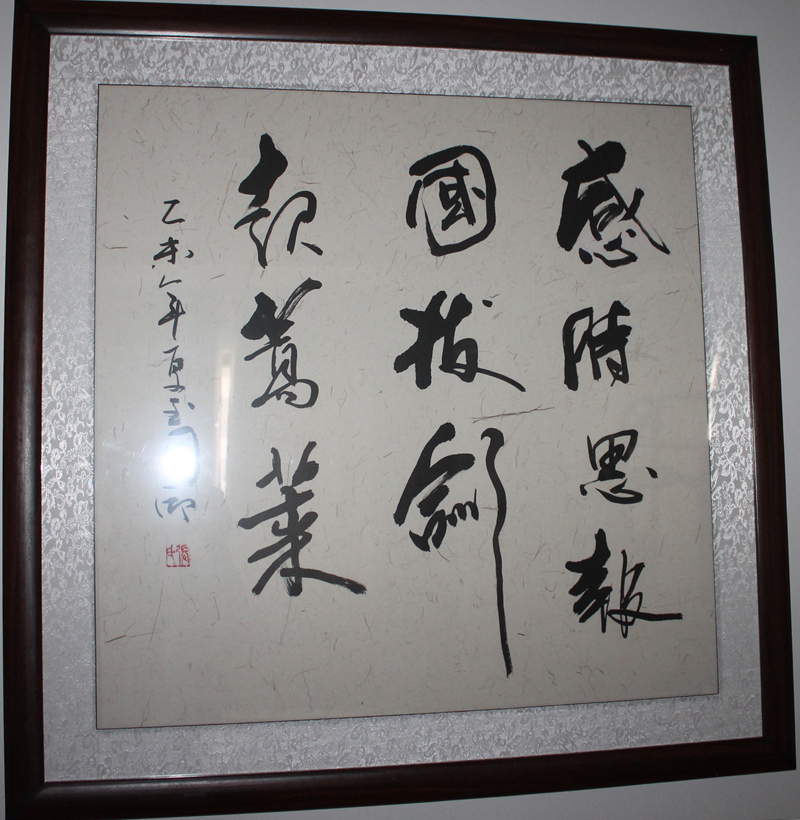 感時思報
國拔劍
起蒿萊
乙未年夏